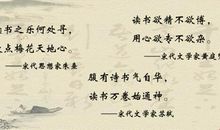 书之乐何处寻，
点梅花天地心。
——宋代思想家朱熹
读书欲精不欲博，
用心欲专不欲杂。
——宋代文学家黄庭
腹有诗书气自华，
读书万卷始通神。
——宋代文学家苏轼